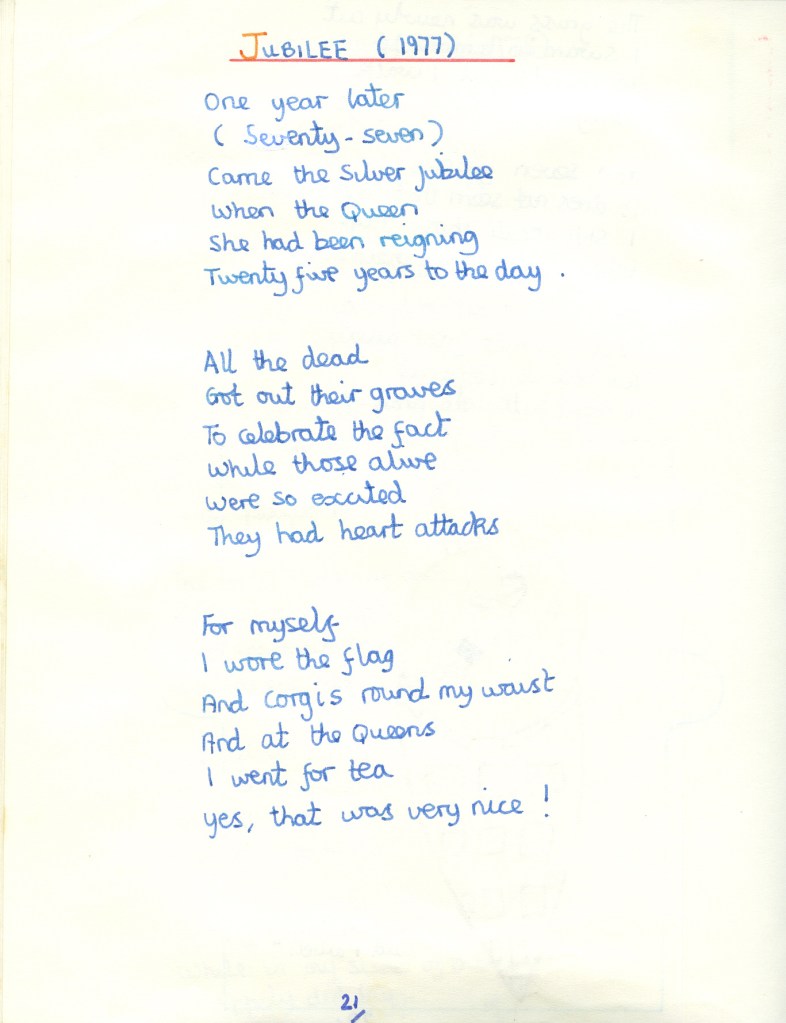 JUBILEE (1977)
One year later
(Seventy-seven)
Came the Silver jubilee
When the Queen
She had been reigning
Twenty five years to the day.
All the dead
Got out their graves
To celebrate the fact
While those alive
Were so excited
They had heart attacks
For myself
I wore the flag
And corgis round my waist
And at the Queens
I went for tea
yes, that was very nice!
21